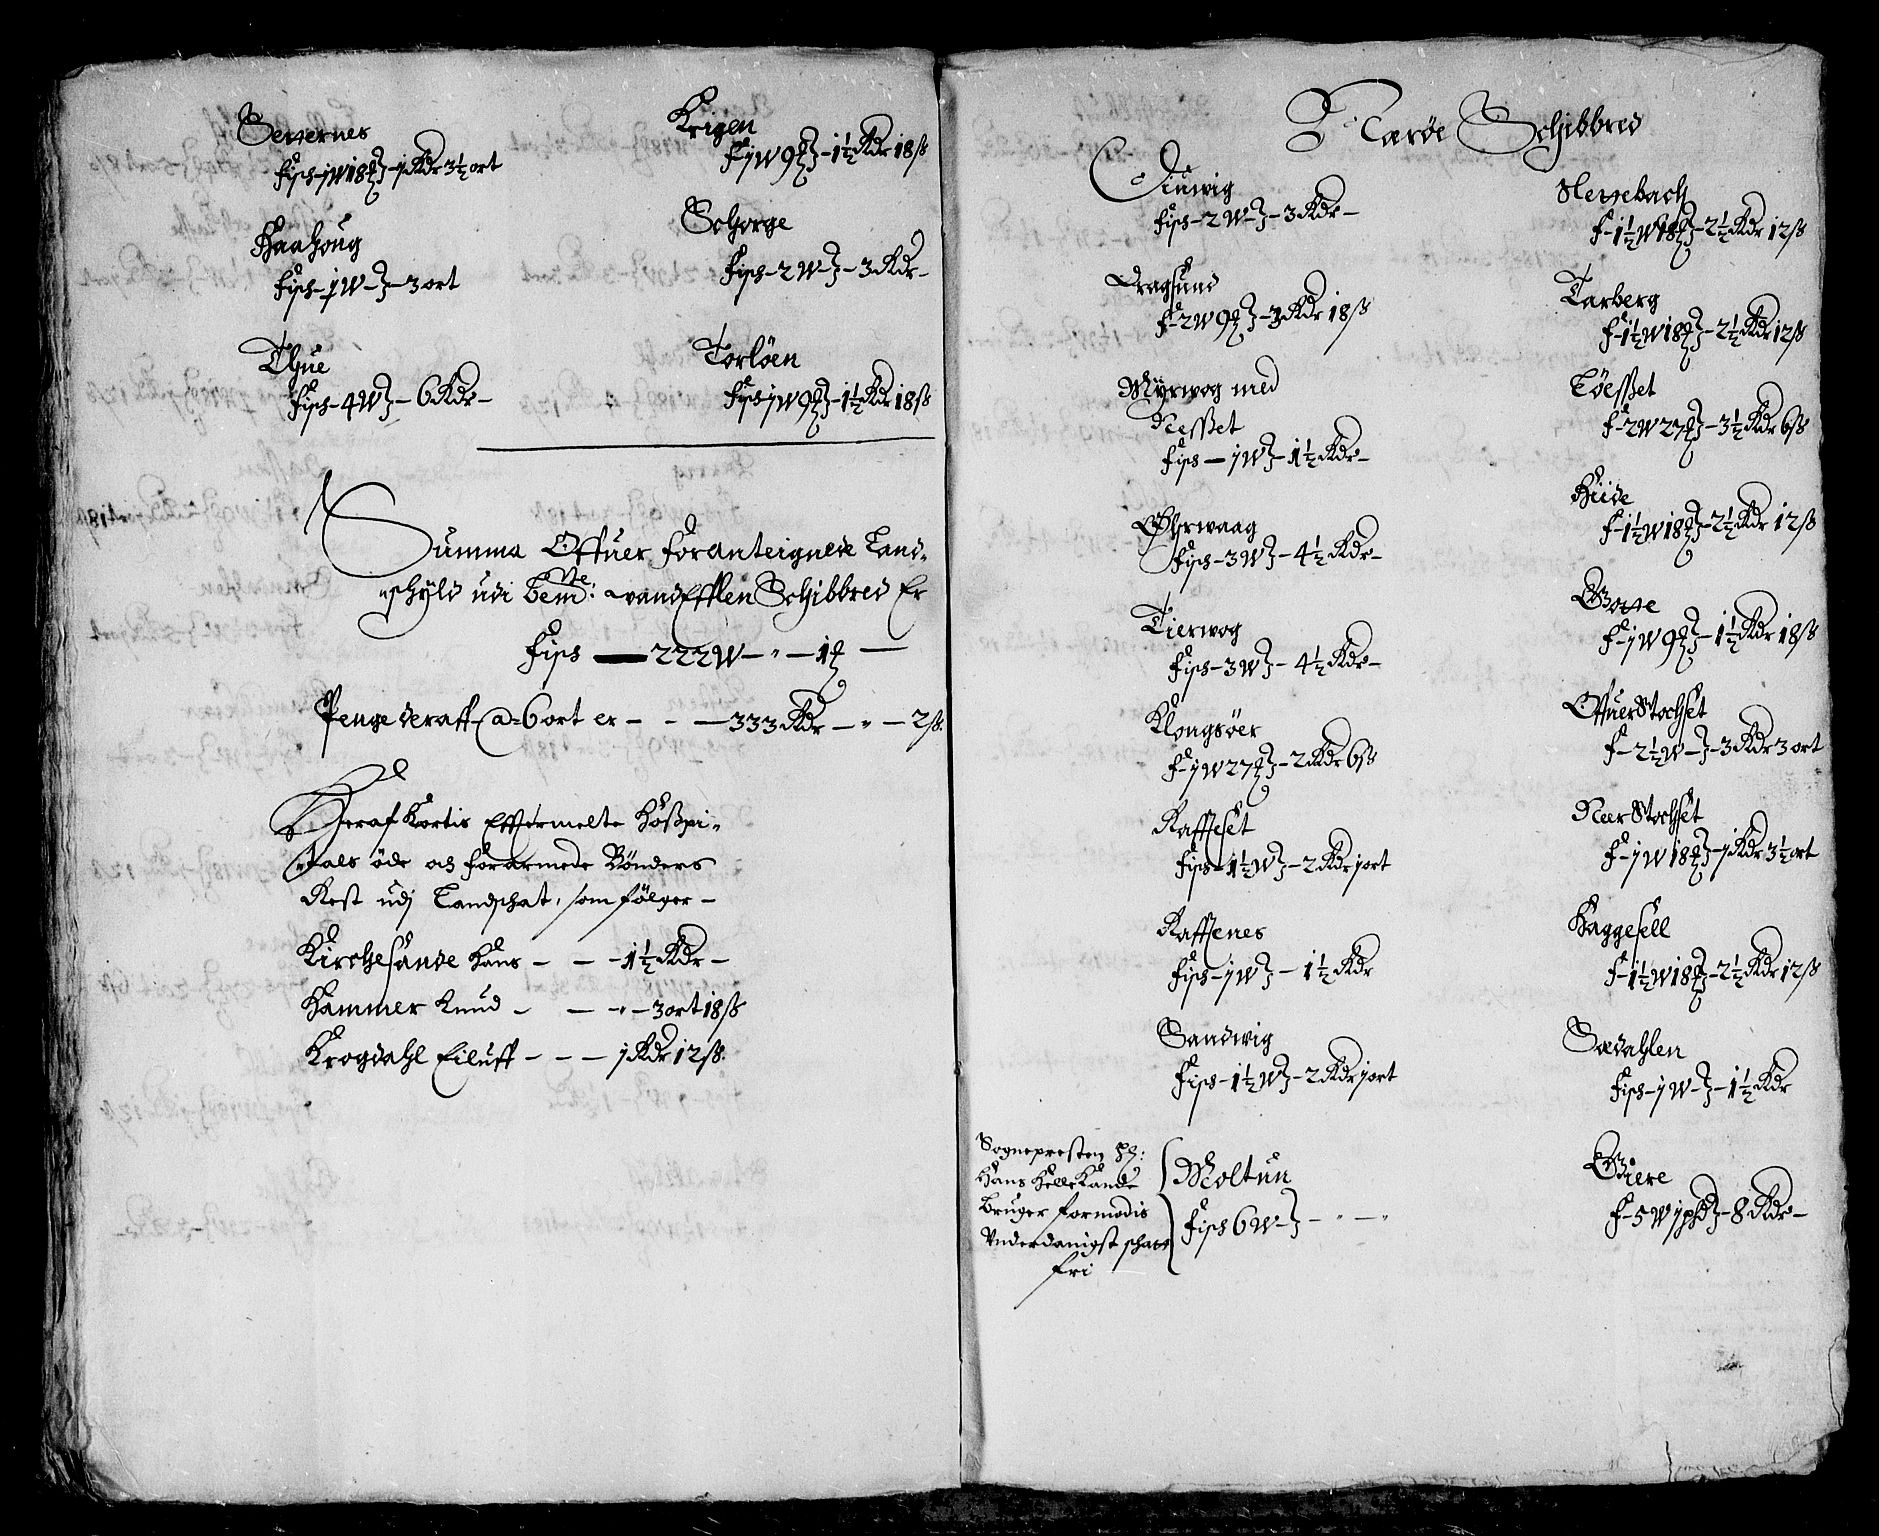 Severnes
Fisch - j W 18 ℔ - j Rdr 3½ ort
Haahoug
Fisch - j W - 3 ort
Thue
Fisch - 4 W - 6 Rdr -
Krigen
F - j W 9 ℔ - 1½ Rdr 18 ß
Schorge
Fisch - 2 W - 3 Rdr -
Torlöen
Fisch j W 9 ℔ - 1½ Rdr 18 ß
Summa Offuer foranteignede Land-
schyld udi bemte: wandEfflen Schibbred Er
Fisch — 222 W - " - 1 ℔ —
Penge deraff a - 6 ort er - - - 333 Rdr - " - 2 ß.
Heraf Kortis Effermelte Hoßpi-
tals öde och forarmede Bönders
Rest udj Landschat, som fölger -
Kirchesande Hans - - - 1½ Rdr -
Hammer Knud - - " - 3 ort 18 ß
Krogdahl Eiluff - - - j Rdr 12 ß.
Heröe Schibbred
Diuwig
Fisch - 2 W - 3 Rdr -
Dragsund
F - 2 W 9 ℔ - 3 Rdr 18 ß
Myrwog med
Nesset
Fisch — j W - 1½ Rdr -
Øhrwaag
Fisch - 3 W - 4½ Rdr -
Tierwog
Fisch - 3 W - 4½ Rdr -
Klongsöer
F - j W 27 ℔ - 2 Rdr 6 ß
Raffteset
Fisch - 1½ W - 2 Rdr j ort
Rafftenes
Fisch - j W - 1½ Rdr
Sandwig
Fisch - 1½ W - 2 Rdr j ort
Sognepresten Hr:
Hans Hellekande
Bruger formodis
Vnderdanigst schatt
fri
Moltun
Fisch 6 W - " - "
Flessebach
F - 1½ W 18 ℔ - 2½ Rdr 12 ß
Tarberg
F - 1½ W 18 ℔ - 2½ Rdr 12 ß
Töesset
F - 2 W 27 ℔ - 3½ Rdr 6 ß
Hiide
F - 1½ W 18 ℔ - 2½ Rdr 12 ß
F - j W 9 ℔ - 1½ Rdr 18 ß
Offuer Stochset
F - 2½ W - 3 Rdr 3 ort
Neer Stochset
F - j W 18 ℔ - j Rdr 3½ ort
Haggesell
F - 1½ W 18 ℔ - 2½ Rdr 12 ß
Sædahlen
Fisch - j W - 1½ Rdr
Giere
F - 5 W j pd - 8 Rdr -